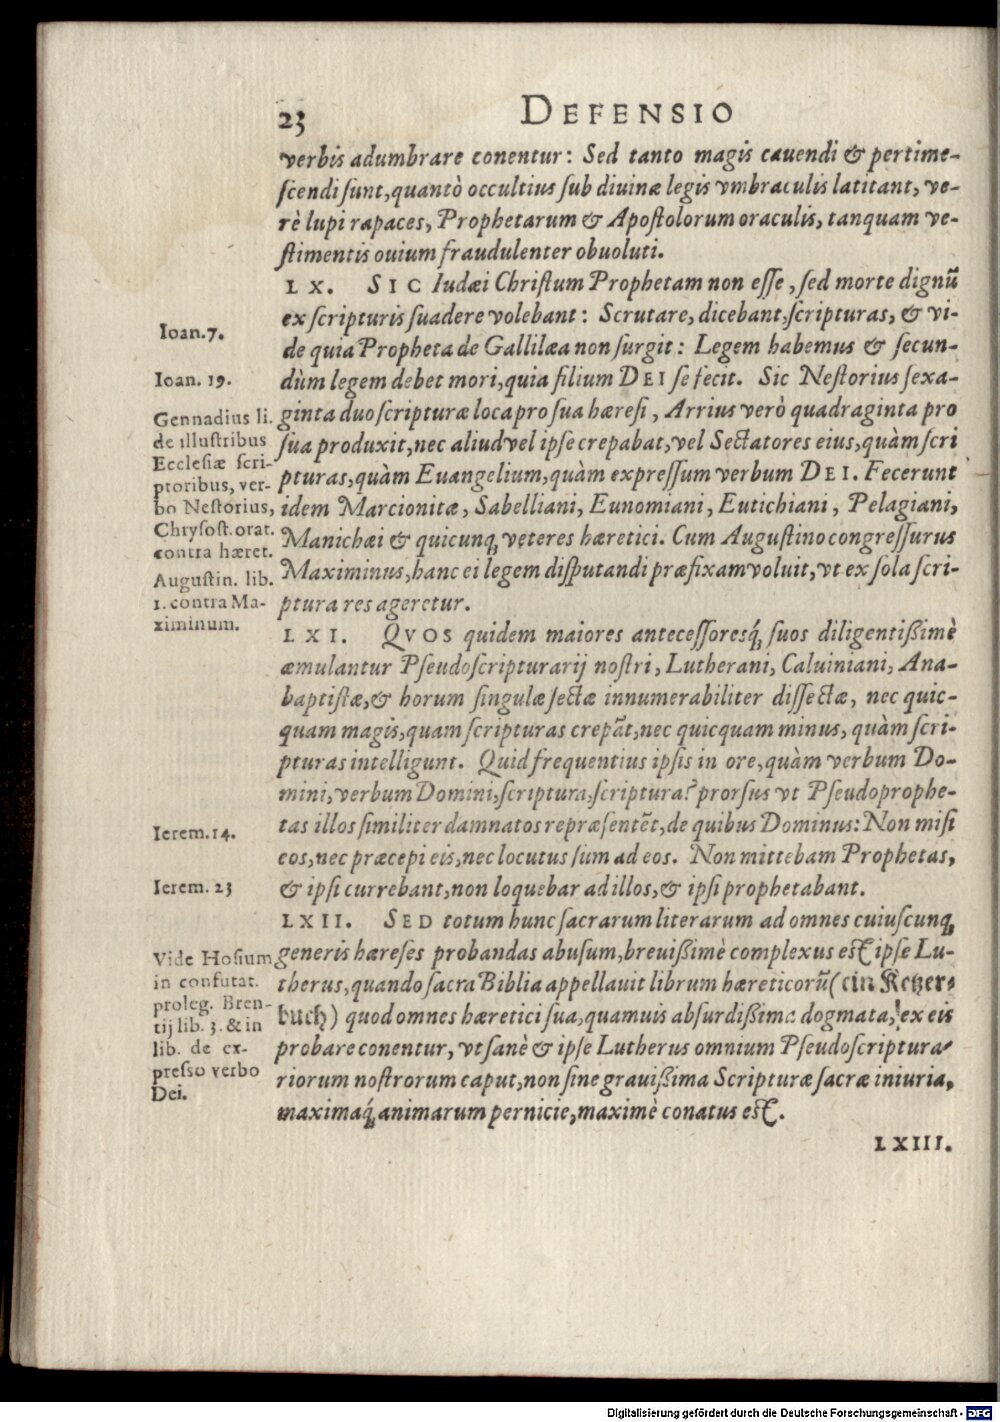 23 DEFENSIO
verbis adumbrare conentur: Sed tanto magis cauendi & pertime-
scendi sunt, quantò occultius sub diuinæ legis vmbraculis latitant, ve-
rè lupi rapaces, Prophetarum & Apostolorum oraculis, tanquam ve-
stimentis ouium fraudulenter obuoluti.
LX. SIC Iudæi Christum Prophetam non esse, sed morte dignũ
Ioan. 7.
ex scripturis suadere volebant: Scrutare, dicebant, scripturas, & vi-
de quia Propheta de Gallilæa non surgit: Legem habemus & secun-
Ioan. 19.
dùm legem debet mori, quia filium DEI se fecit. Sic Nestorius sexa-
Gennadius li.
de illustribus
Ecclesiæ scri-
ptoribus, ver-
bo Nestorius,
Chrysost. orat.
contra hæret.
Augustin. lib.
1. contra Ma-
ximinum.
ginta duo scripturæ loca pro sua hæresi, Arrius verò quadraginta pro
sua produxit, nec aliud vel ipse crepabat, vel Sectatores eius, quàm scri
pturas, quàm Euangelium, quàm expressum verbum DEI. Fecerunt
idem Marcionitæ, Sabelliani, Eunomiani, Eutichiani, Pelagiani,
Manichæi & quicunq; veteres hæretici. Cum Augustino congressurus
Maximinus, hanc ei legem disputandi præfixam voluit, vt ex sola scri-
ptura res ageretur.
LXI. QVOS quidem maiores antecessoresq́; suos diligentißimè
æmulantur Pseudoscripturarij nostri, Lutherani, Caluiniani, Ana-
baptistæ, & horum singulæ sectæ innumerabiliter dissectæ, nec quic-
quam magis, quam scripturas crepãt, nec quicquam minus, quàm scri-
pturas intelligunt. Quid frequentius ipsis in ore, quàm verbum Do-
mini, verbum Domini, scriptura, scriptura? prorsus vt Pseudoprophe-
Ierem. 14.
tas illos similiter damnatos repræsentẽt, de quibus Dominus: Non misi
eos, nec præcepi eis, nec locutus sum ad eos. Non mittebam Prophetas,
Ierem. 23
& ipsi currebant, non loquebar ad illos, & ipsi prophetabant.
LXII. SED totum hunc sacrarum literarum ad omnes cuiuscunq;
Vide Hosium
in confutat.
proleg. Bren-
tij lib. 3. & in
lib. de ex-
presso verbo
Dei.
generis hæreses probandas abusum, breuißimè complexus est ipse Lu-
therus, quando sacra Biblia appellauit librum hæreticorũ (ein Ketzer-
buch) quod omnes hæretici sua, quamuis absurdißima dogmata, ex eis
probare conentur, vt sanè & ipse Lutherus omnium Pseudoscriptura-
riorum nostrorum caput, non sine grauißima Scripturæ sacræ iniuria,
maximaq́; animarum pernicie, maximè conatus est.
LXIII.
Digitalisierung gefördert durch die Deutsche Forschungsgemeinschaft - DFG